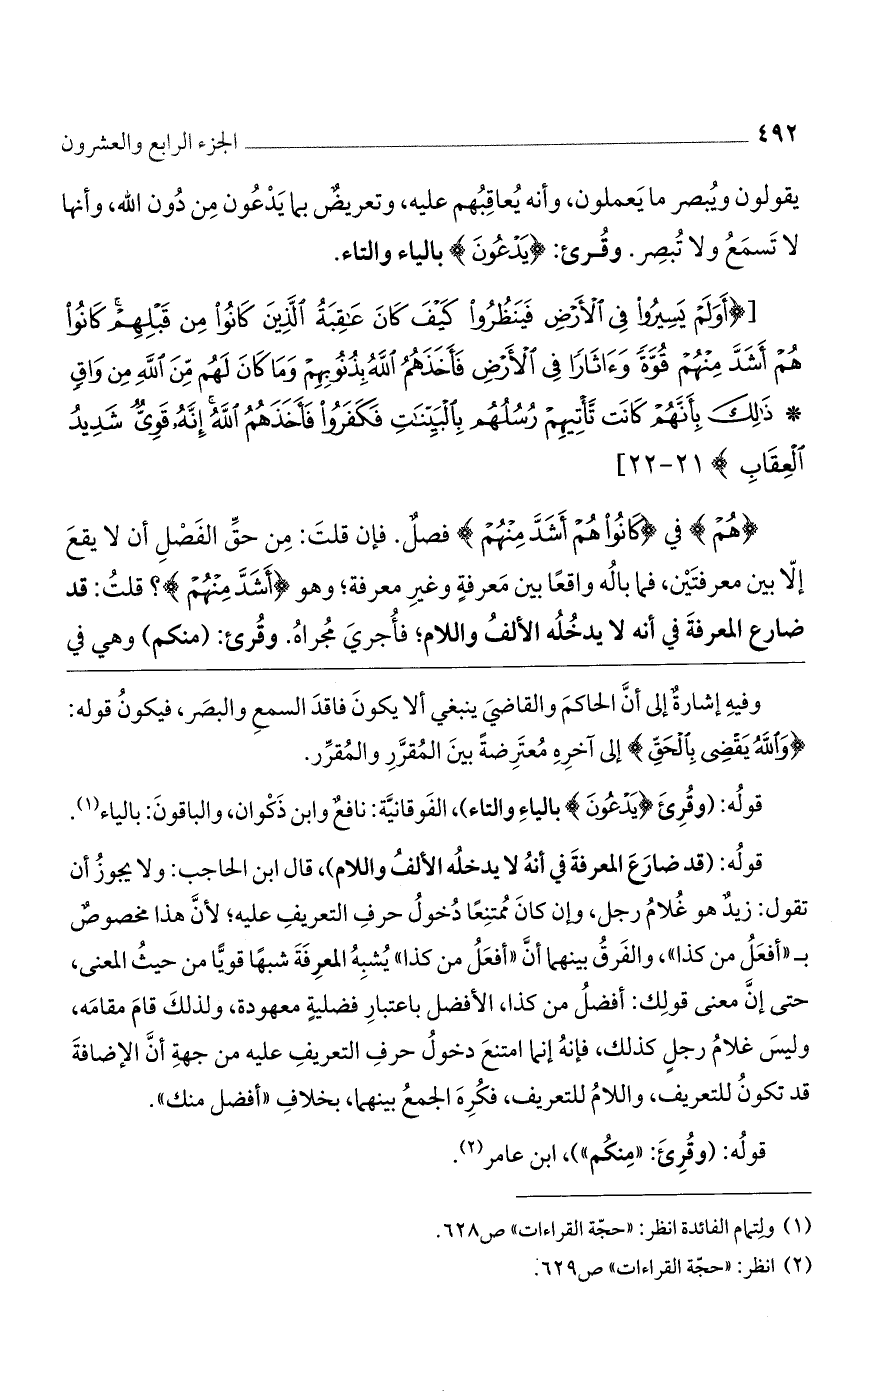 ٤٩٢ ــــــــــــــــــــ الجزء الرابع والعشرون
يقولون ويُبصر ما يَعملون، وأنه يُعاقِبُهم عليه، وتعريضٌ بما يَدْعُون مِن دُون الله، وأنها
لا تَسمَعُ ولا تُبصِر. وقُرئ: ﴿يَدْعُونَ﴾ بالياء والتاء.
[﴿أَوَلَمْ يَسِيرُوا۟ فِى ٱلْأَرْضِ فَيَنظُرُوا۟ كَيْفَ كَانَ عَٰقِبَةُ ٱلَّذِينَ كَانُوا۟ مِن قَبْلِهِمْ ۚ كَانُوا۟
هُمْ أَشَدَّ مِنْهُمْ قُوَّةً وَءَاثَارًا فِى ٱلْأَرْضِ فَأَخَذَهُمُ ٱللَّهُ بِذُنُوبِهِمْ وَمَا كَانَ لَهُم مِّنَ ٱللَّهِ مِن وَاقٍ
* ذَٰلِكَ بِأَنَّهُمْ كَانَت تَّأْتِيهِمْ رُسُلُهُم بِٱلْبَيِّنَٰتِ فَكَفَرُوا۟ فَأَخَذَهُمُ ٱللَّهُ ۚ إِنَّهُۥ قَوِىٌّ شَدِيدُ
ٱلْعِقَابِ﴾ ٢١-٢٢]
﴿هُمْ﴾ في ﴿كَانُوا۟ هُمْ أَشَدَّ مِنْهُمْ﴾ فصلٌ. فإن قلتَ: مِن حقِّ الفَصْلِ أن لا يقعَ
إلّا بين معرفتَيْن، فما بالُه واقعًا بين مَعرفةٍ وغيرِ معرفة؛ وهو ﴿أَشَدَّ مِنْهُمْ﴾؟ قلتُ: قد
ضارع المعرفةَ في أنه لا يدخُلُه الألفُ واللام؛ فأُجريَ مُجراهُ. وقُرئ: (منكم) وهي في
وفيهِ إشارةٌ إلى أنَّ الحاكمَ والقاضيَ ينبغي ألا يكونَ فاقدَ السمعِ والبصَر، فيكونُ قوله:
﴿وَٱللَّهُ يَقْضِى بِٱلْحَقِّ﴾ إلى آخرِهِ مُعتَرِضةً بينَ المُقرَّرِ والمُقرِّر.
قولُه: (وقُرِئَ ﴿يَدْعُونَ﴾ بالياءِ والتاء)، الفَوقانيَّة: نافعٌ وابن ذَكْوان، والباقونَ: بالياء(١).
قولُه: (قد ضارَعَ المعرفةَ في أنهُ لا يدخله الألفُ واللام)، قال ابن الحاجب: ولا يجوزُ أن
تقول: زيدٌ هو غُلامُ رجل، وإن كانَ مُمتنِعًا دُخولُ حرفِ التعريفِ عليه؛ لأنَّ هذا مخصوصٌ
بـ «أفعَلُ من كذا»، والفَرقُ بينهما أنَّ «أفعَلُ من كذا» يُشبِهُ المعرِفَةَ شبهًا قويًّا من حيثُ المعنى،
حتى إنَّ معنى قولِك: أفضلُ من كذا، الأفضل باعتبارِ فضليةٍ معهودة، ولذلكَ قامَ مقامَه،
وليسَ غلامُ رجلٍ كذلك، فإنهُ إنما امتنعَ دخولُ حرفِ التعريفِ عليه من جهةِ أنَّ الإضافةَ
قد تكونُ للتعريف، واللامُ للتعريف، فكُرِهَ الجمعُ بينهما، بخلافِ «أفضل منك».
قولُه: (وقُرِئَ: «مِنكُم»)، ابن عامر(٢).
(١) ولِتمام الفائدة انظر: «حجّة القراءات» ص٦٢٨.
(٢) انظر: «حجّة القراءات» ص٦٢٩.